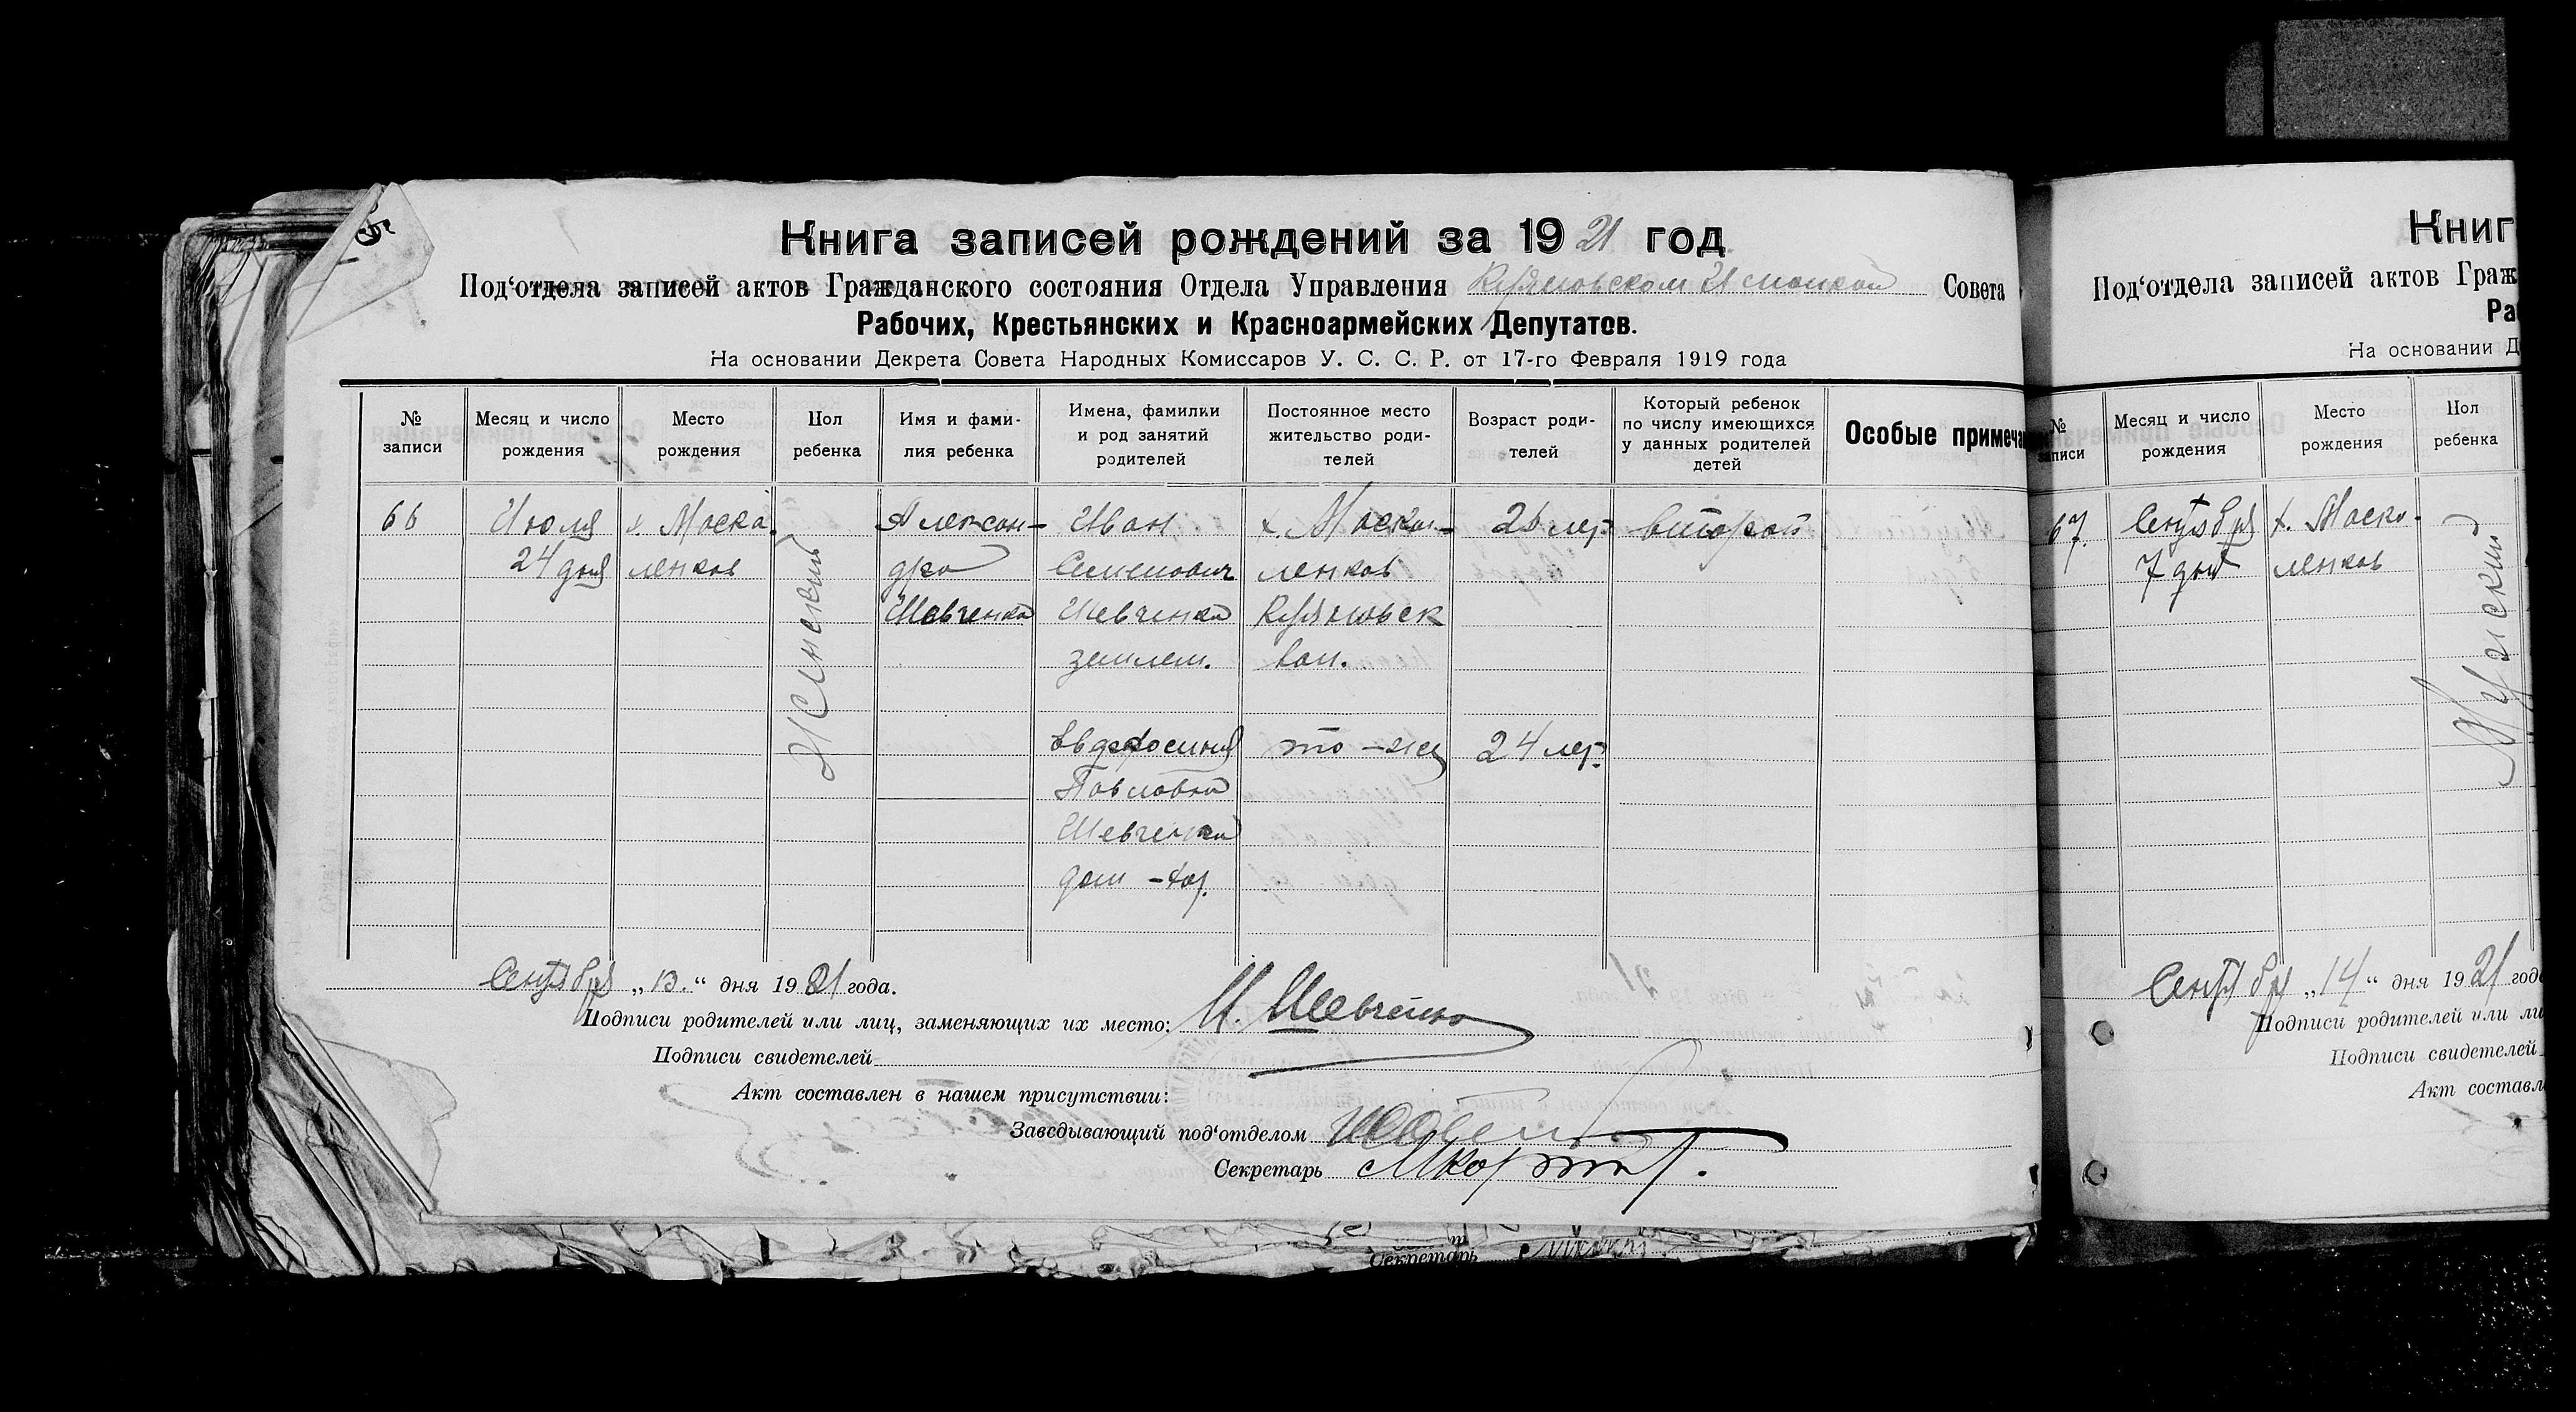 Книга записей рождений за 1921 год
Под‘отдела записей актов Гражданского состояния Отдела Управления Совета
Рабочих, Крестьянских и Красноармейских Депутатов.
На основании Декрета Совета Народных Комиссаров У. С. С. Р. от 17-го Февраля 1919 года
№ записи
Месяц и число рождения
Место рождения
Пол ребенка
Имя и фами-
лия ребенка
Имена, фамилии
и род занятий
родителей
Постоянное место
жительство роди-
телей
Возраст роди-
телей
Который ребенок
по числу имеющихся
у данных родителей
детей
Особые примеча
66
Июля
24 дня
х. Моска
ленков
Женский
Алексан-
дра
Шевченко
Иван
Семенович
Шевченко
землем.
х. Моска-
ленков
вол.
26 лет
второй
Евдофосиния
Павловна
Шевченко
дом -хоз.
то -же
24 лет
Сентября „13.“ дня 1921 года.
Подписи родителей или лиц, заменяющих их место: И. Шевченко
Подписи свидетелей
Акт составлен в нашем присутствии:
Заведывающий под‘отделом
Секретарь
Секретарь
Книг
Под‘отдела записей актов Граж
Ра
На основании Д
№
записи
Месяц и число
рождения
Место
рождения
Пол
ребенка
67.
Сентября
7 дня
х. Моска-
ленков
Мужский
Сентября „14“ дня 1921 год
Подписи родителей или ли
Подписи свидетелей
Акт составл